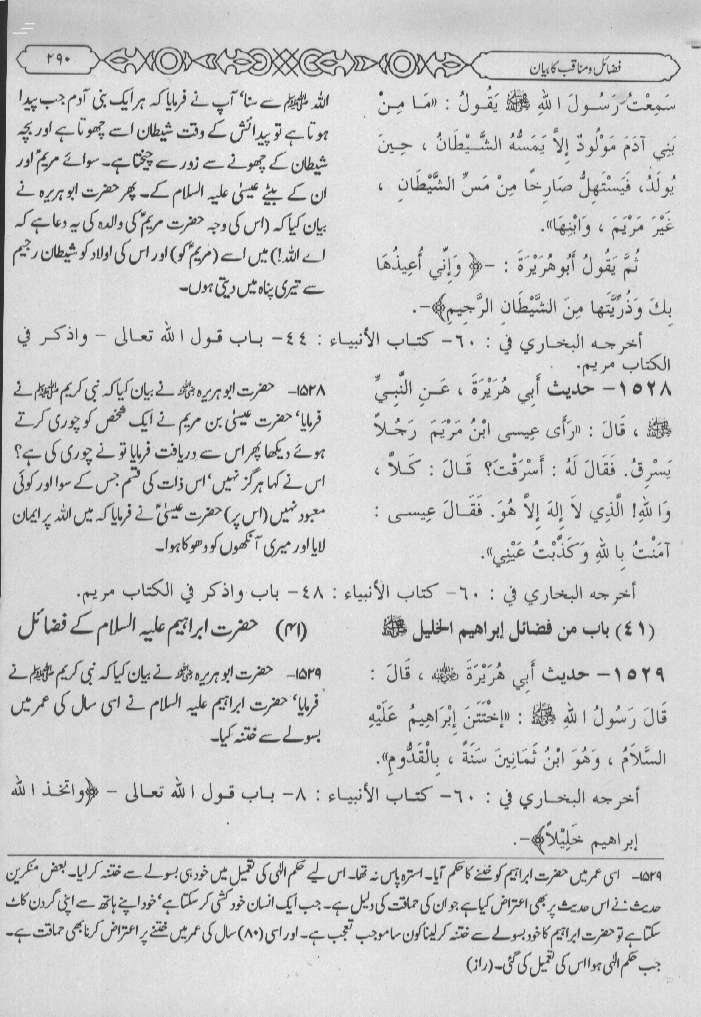 فضائل و مناقب کا بیان
۲۹۰
سَمِعْتُ رَسُولَ اللهِ ﷺ يَقُولُ : «مَا مِنْ
بَنِي آدَمَ مَوْلُودٌ إِلاَّ يَمَسُّهُ الشَّيْطَانُ ، حِينَ
يُولَدُ، فَيَسْتَهِلُّ صَارِخًا مِنْ مَسِّ الشَّيْطَانِ ،
غَيْرَ مَرْيَمَ ، وَابْنِهَا».
ثُمَّ يَقُولُ أَبُوهُرَيْرَةَ : -﴿ وَإِنِّي أُعِيذُهَا
بِكَ وَذُرِّيَّتَها مِنَ الشَّيْطَانِ الرَّجِيمِ﴾-.
اللہ ﷺ سے سنا‘ آپ نے فرمایا کہ ہر ایک بنی آدم جب پیدا
ہوتا ہے تو پیدائش کے وقت شیطان اسے چھوتا ہے اور بچہ
شیطان کے چھونے سے زور سے چیختا ہے۔ سوائے مریمؑ اور
ان کے بیٹے عیسیٰ علیہ السلام کے۔ پھر حضرت ابو ہریرہ نے
بیان کیا کہ (اس کی وجہ حضرت مریمؑ کی والدہ کی یہ دعا ہے کہ
اے اللہ!) میں اسے (مریمؑ کو) اور اس کی اولاد کو شیطان رجیم
سے تیری پناہ میں دیتی ہوں۔
أخرجه البخاري في : ٦٠- كتاب الأنبياء : ٤٤- باب قول الله تعالى - واذكر في
الكتاب مريم.
١٥٢٨- حديث أَبِي هُرَيْرَةَ ، عَنِ النَّبِيِّ
ﷺ ، قَالَ : «رَأَى عِيسى ابْنُ مَرْيَمَ رَجُلاً
يَسْرِقُ. فَقَالَ لَهُ : أَسْرَقْتَ؟ قَالَ : كَلاَّ ،
وَاللهِ! الَّذِي لاَ إِلهَ إِلاَّ هُوَ. فَقَالَ عِيسى :
آمَنْتُ بِاللهِ وَكَذَّبْتُ عَيْنِي».
۱۵۲۸- حضرت ابو ہریرہ رضی اللہ عنہ نے بیان کیا کہ نبی کریم ﷺ نے
فرمایا‘ حضرت عیسیٰ بن مریم نے ایک شخص کو چوری کرتے
ہوئے دیکھا پھر اس سے دریافت فرمایا تو نے چوری کی ہے؟
اس نے کہا ہرگز نہیں‘ اس ذات کی قسم جس کے سوا اور کوئی
معبود نہیں (اس پر) حضرت عیسیٰؑ نے فرمایا کہ میں اللہ پر ایمان
لایا اور میری آنکھوں کو دھوکا ہوا۔
أخرجه البخاري في : ٦٠- كتاب الأنبياء : ٤٨- باب واذكر في الكتاب مريم.
(٤١) باب من فضائل إبراهيم الخليل ﷺ
(۴۱) حضرت ابراہیم علیہ السلام کے فضائل
١٥٢٩- حديث أَبِي هُرَيْرَةَ رضي الله عنه ، قَالَ :
قَالَ رَسُولُ اللهِ ﷺ : «اخْتَتَنَ إِبْرَاهِيمُ عَلَيْهِ
السَّلاَمُ ، وَهُوَ ابْنُ ثَمَانِينَ سَنَةً ، بِالْقَدُّومِ».
۱۵۲۹- حضرت ابو ہریرہ رضی اللہ عنہ نے بیان کیا کہ نبی کریم ﷺ نے
فرمایا‘ حضرت ابراہیم علیہ السلام نے اسی سال کی عمر میں
بسولے سے ختنہ کیا۔
أخرجه البخاري في : ٦٠- كتاب الأنبياء : ٨- باب قول الله تعالى - ﴿واتخذ الله
إبراهيم خَلِيْلاً﴾-.
۱۵۲۹- اسی عمر میں حضرت ابراہیم کو ختنے کا حکم آیا۔ استرہ پاس نہ تھا۔ اس لیے حکم الٰہی کی تعمیل میں خود ہی بسولے سے ختنہ کر لیا۔ بعض منکرین
حدیث نے اس حدیث پر بھی اعتراض کیا ہے جو ان کی حماقت کی دلیل ہے۔ جب ایک انسان خود کشی کر سکتا ہے‘ خود اپنے ہاتھ سے اپنی گردن کاٹ
سکتا ہے تو حضرت ابراہیم کا خود بسولے سے ختنہ کر لینا کون سا موجب تعجب ہے۔ اور اسی (۸۰) سال کی عمر میں ختنے پر اعتراض کرنا بھی حماقت ہے۔
جب حکم الٰہی ہوا اس کی تعمیل کی گئی۔ (راز)